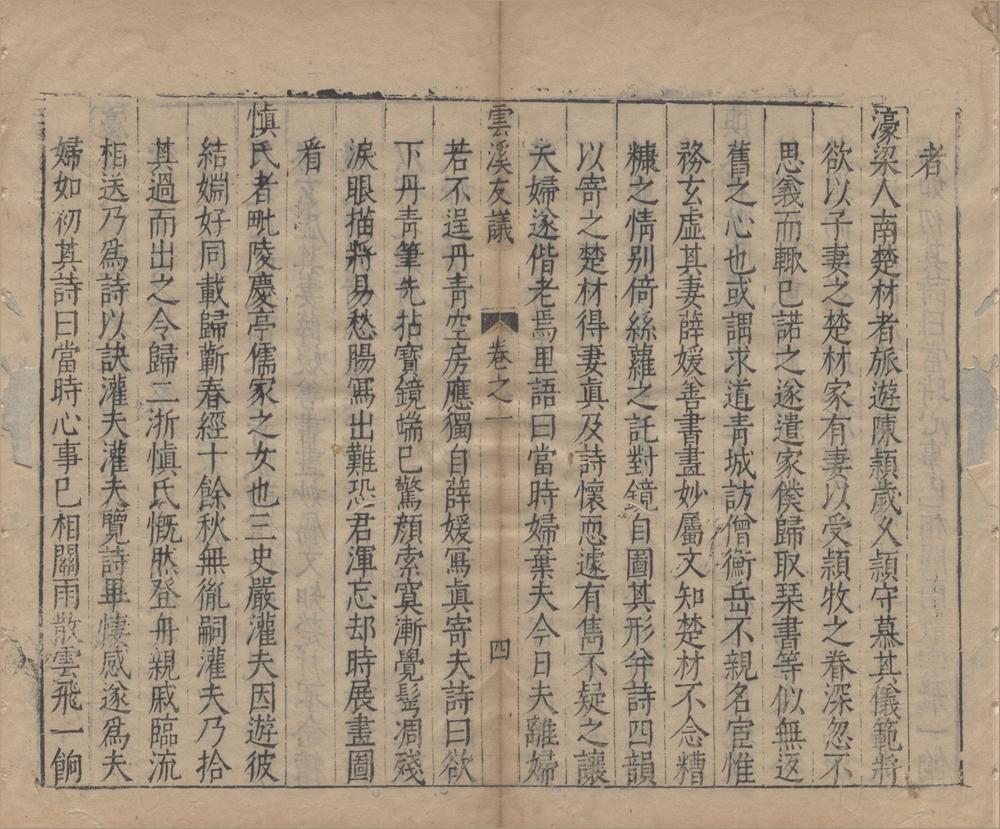 者
濠梁人南楚材者旅遊陳潁歲久潁守慕其儀範將
欲以子妻之楚材家有妻以受潁牧之眷深忽不
思義而輙已諾之遂遣家僕歸取琹書等似無返
舊之心也或謂求道青城訪僧衡岳不親名宦惟
務玄虛其妻薛媛善書畫妙屬文知楚材不念糟
糠之情别倚絲蘿之託對鏡自圖其形并詩四韻
以寄之楚材得妻眞及詩懷恧遽有雋不疑之讓
夫婦遂偕老焉里語曰當時婦棄夫今日夫離婦
雲溪友議 卷之一 四
若不逞丹青空房應獨自薛媛冩眞寄夫詩曰欲
下丹青筆先拈寶鏡端已驚顏索寞漸覺鬂凋殘
淚眼描將易愁腸冩出難恐君渾忘却時展畫圖
看
慎氏者毗陵慶亭儒家之女也三史嚴灌夫因遊彼
結婣好同載歸蘄春經十餘秋無胤嗣灌夫乃拾
其過而出之令歸二浙慎氏慨然登舟親戚臨流
相送乃爲詩以訣灌夫灌夫覽詩畢悽感遂爲夫
婦如初其詩曰當時心事已相關雨散雲飛一餉